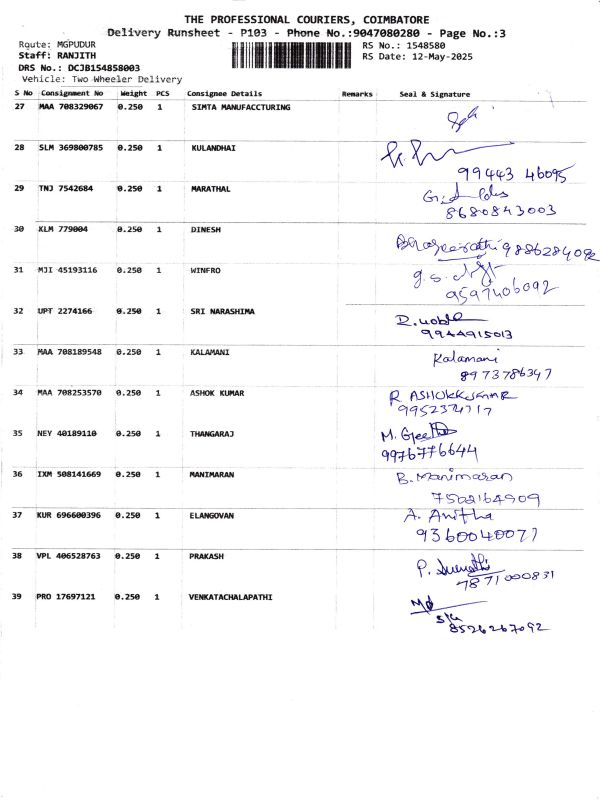 THE PROFESSIONAL COURIERS, COIMBATORE
Delivery Runsheet - P103 - Phone No.:9047080280 - Page No.:3
Route: MGPUDUR RS No.: 1548580
Staff: RANJITH RS Date: 12-May-2025
DRS No.: DCJB154858003
Vehicle: Two Wheeler Delivery
S No Consignment No Weight PCS Consignee Details Remarks Seal & Signature
27 MAA 708329067 0.250 1 SIMTA MANUFACCTURING
28 SLM 369800785 0.250 1 KULANDHAI
99443 46095
29 TNJ 7542684 0.250 1 MARATHAL
8680843003
30 KLM 779004 0.250 1 DINESH
Bhageerathi 9886284092
31 MJI 45193116 0.250 1 WINFRO
9597406092
32 UPT 2274166 0.250 1 SRI NARASHIMA
R. noble
9944915013
33 MAA 708189548 0.250 1 KALAMANI
Kalamani
8973786347
34 MAA 708253570 0.250 1 ASHOK KUMAR
R ASHOKKUMAR
35 NEY 40189110 0.250 1 THANGARAJ
M. Geetha
9976776644
36 IXM 508141669 0.250 1 MANIMARAN
B. Manimaran
7502164909
37 KUR 696600396 0.250 1 ELANGOVAN
A. Anitha
9360040077
38 VPL 406528763 0.250 1 PRAKASH
P. Sumathi
7871000831
39 PRO 17697121 0.250 1 VENKATACHALAPATHI
8526267092